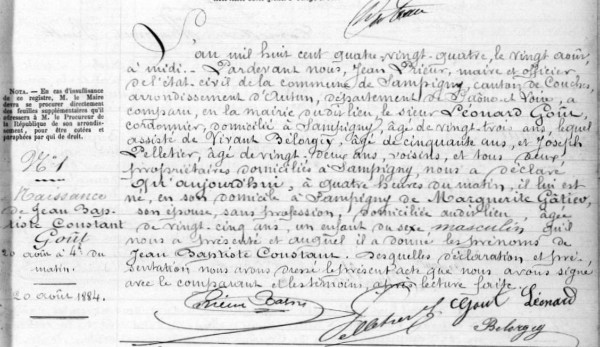 NOTA. — En cas d'insuffisance
de ce registre, M. le Maire
devra se procurer directement
des feuilles supplémentaires qu'il
adressera à M. le Procureur de
la République de son arrondis-
sement, pour être cotées et
paraphées par qui de droit.
Nº 1
Naissance
de Jean Bap-
tiste Constant
Goût
20 août à 4h du
matin.
20 août 1884.
L'an mil huit cent quatre-vingt-quatre, le vingt août
à midi. Pardevant nous, Jean Prieur, maire et officier
de l'état-civil de la commune de Sampigny, canton de Couches,
arrondissement d'Autun, département de Saône et Loire, a
comparu, en la mairie dudit lieu, le sieur Léonard Goût,
cordonnier, domicilié à Sampigny, âgé de vingt-trois ans, lequel
assisté de Vivant Belorgey, âgé de cinquante ans, et Joseph
Pelletier, âgé de vingt-deux ans, voisins, et tous deux
propriétaires domiciliés à Sampigny, nous a déclaré
Qu'aujourd'hui, à quatre heures du matin, il lui est
né, en son domicile à Sampigny de Marguerite
son épouse, sans profession, domiciliée audit lieu, âgée
de vingt-cinq ans, un enfant du sexe masculin qu'il
nous a présenté et auquel il a donné les prénoms de
Jean Baptiste Constant. Desquelles déclaration et pré-
sentation nous avons dressé le présent acte que nous avons signé
avec le comparant et les témoins, après lecture faite.
Prieur
Gout Léonard
Belorgey